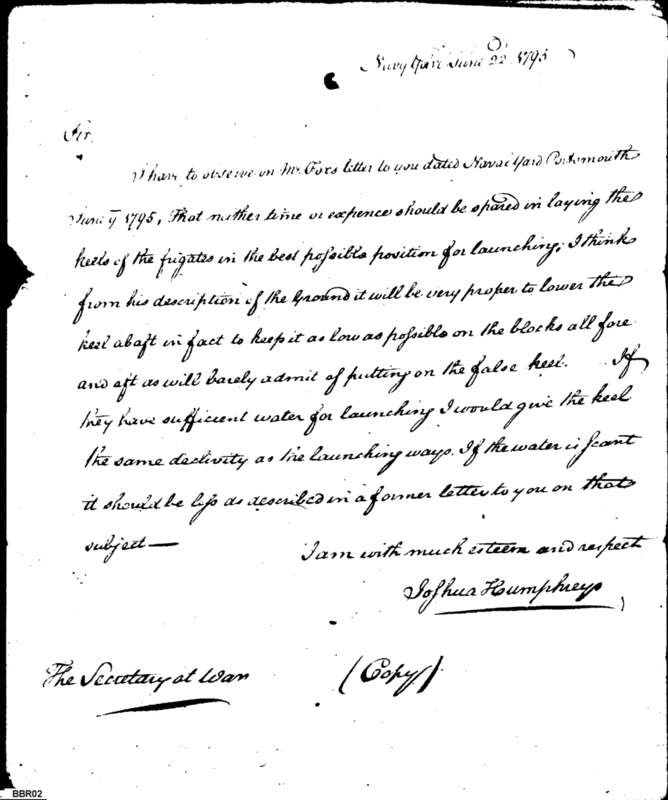 Navy Yard June 22d 1795
Sir,
I have to observe on Mr. Fox's letter to you dated Naval Yard Portsmouth
June 7 1795, That neither time or expence should be spared in laying the
keels of the frigates in the best possible position for launching; I think
from his description of the Ground it will be very proper to lower the
keel abaft in fact to keep it as low as possible on the blocks all fore
and aft as will barely admit of putting on the false keel. If
they have sufficient water for launching I would give the keel
the same declivity as the launching ways. If the water is scant
it should be less as described in a former letter to you on that
subject—
I am with much esteem and respect
Joshua Humphreys
The Secretary at War (Copy)
BBR02